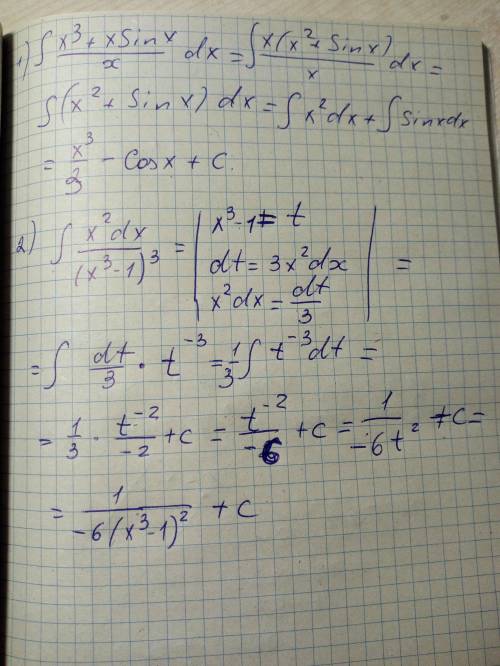 1) ∫ (x³ + x Sin x)/x dx = ∫ x(x² + Sin x)/x dx =
∫ (x² + Sin x) dx = ∫ x² dx + ∫ Sinx dx
= x³/3 - Cosx + C.
2) ∫ x² dx/(x³-1)³ = | x³-1 = t
dt = 3x² dx
x² dx = dt/3 | =
= ∫ dt/3 · t⁻³ = 1/3 ∫ t⁻³ dt =
= 1/3 · t⁻²/-2 + C = t⁻²/-6 + C = 1/-6t² + C =
= 1/-6(x³-1)² + C